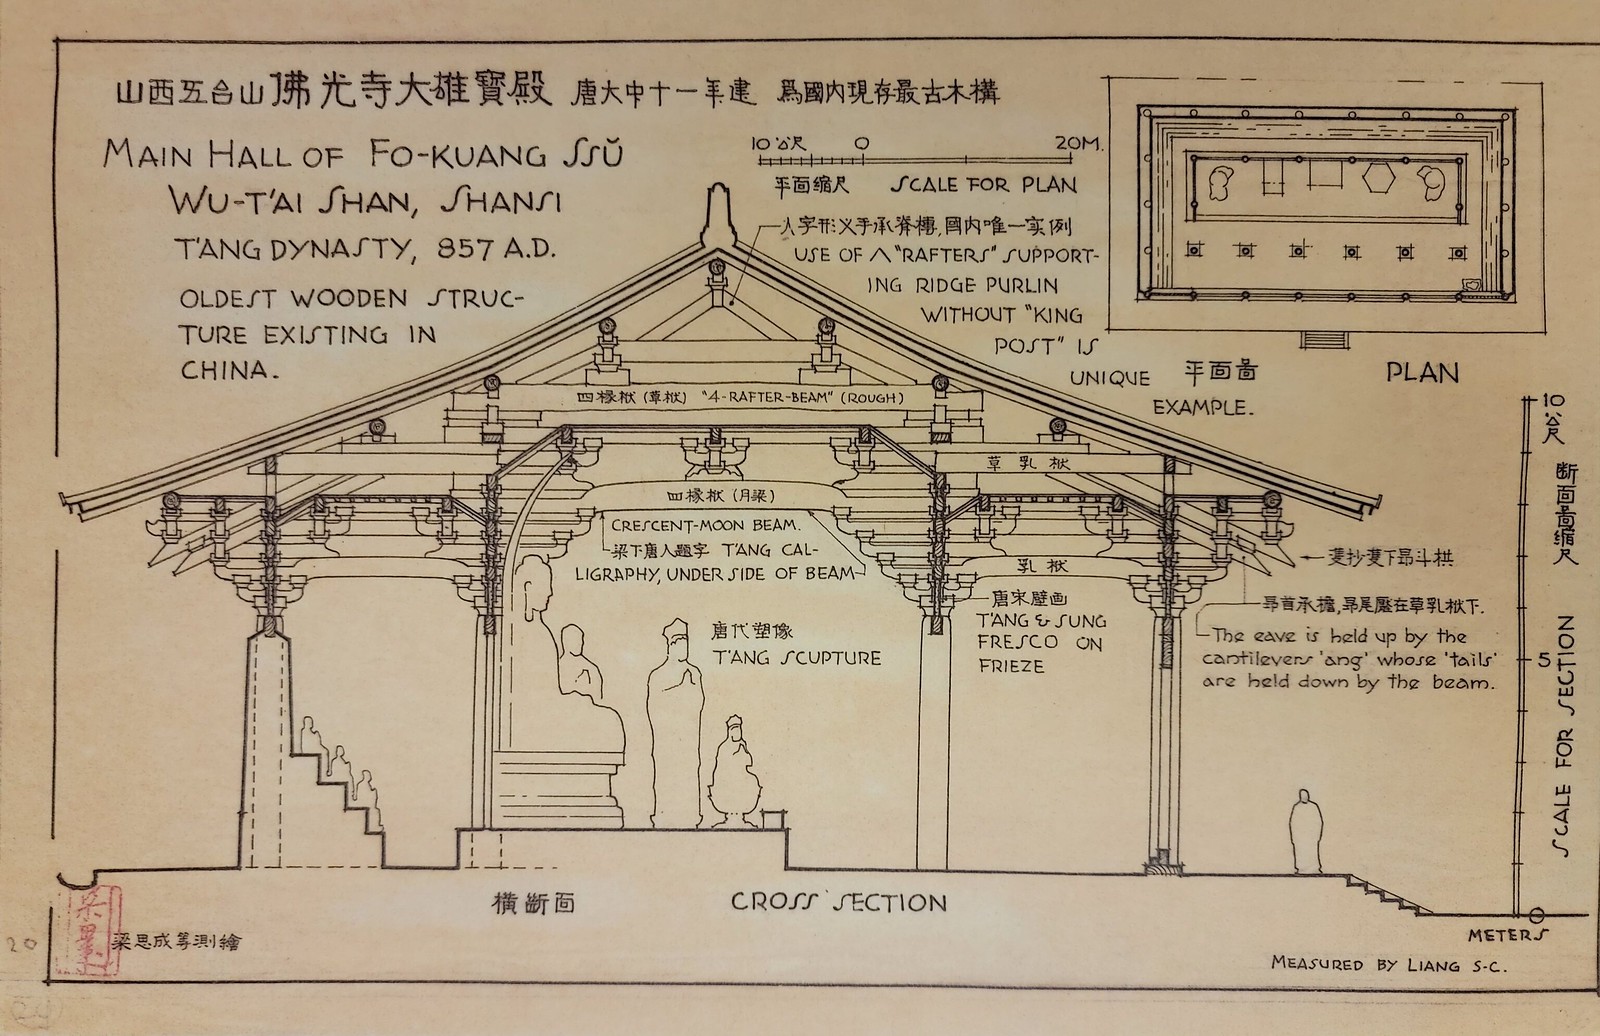 山西五台山佛光寺大雄寶殿 唐大中十一年建 爲國内現存最古木構
MAIN HALL OF FO-KUANG SSŬ
WU-T'AI SHAN, SHANSI
T'ANG DYNASTY, 857 A.D.
OLDEST WOODEN STRUC-
TURE EXISTING IN
CHINA.
10 公尺 0 20M.
平面縮尺 SCALE FOR PLAN
人字形义手承脊槫,國内唯一实例
USE OF ∧ "RAFTERS" SUPPORT-
ING RIDGE PURLIN
WITHOUT "KING
POST" IS
UNIQUE
EXAMPLE.
平面啚 PLAN
四椽栿 (草栿) "4-RAFTER-BEAM" (ROUGH)
草乳栿
四椽栿 (月梁)
CRESCENT-MOON BEAM.
梁下唐人題字 T'ANG CAL-
LIGRAPHY, UNDER SIDE OF BEAM
乳栿
唐宋壁画
T'ANG & SUNG
FRESCO ON
FRIEZE
唐代塑像
T'ANG SCUPTURE
双抄双下昂斗栱
昂首承檐,昂尾壓在草乳栿下.
The eave is held up by the
cantilevers 'ang' whose 'tails'
are held down by the beam.
10
公尺
5
0
METERS
断面啚縮尺 SCALE FOR SECTION
橫斷面 CROSS SECTION
梁思成等測繪
MEASURED BY LIANG S-C.
20